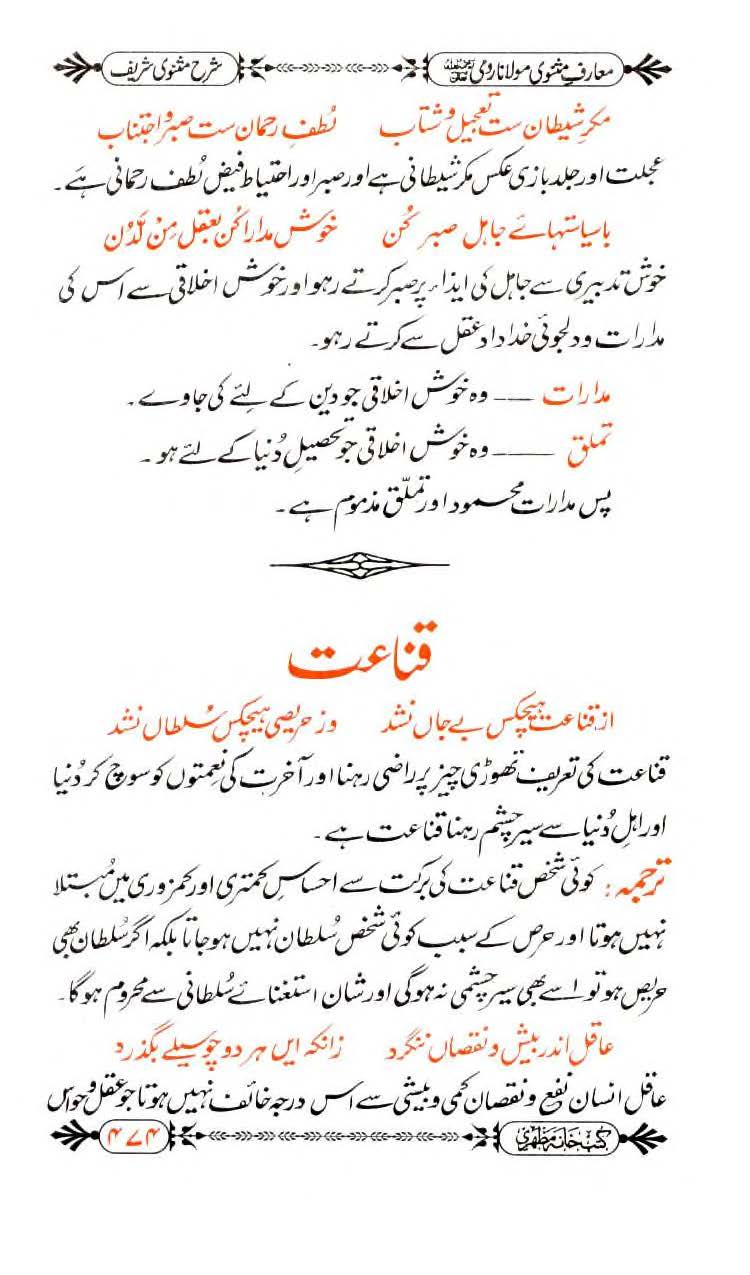 معارفِ مثنوی مولانا رومی رحمۃ اللہ علیہ
شرح مثنوی شریف
مکرِ شیطان ست تعجیل و شتاب     لُطفِ رحمان ست صبر و اجتناب
عجلت اور جلد بازی عکس مکرِ شیطانی ہے اور صبر اور احتیاط فیض لُطف رحمانی ہے۔
باسیاستہائے جاہل صبر کُن     خوش مدارا کُن بعقل مِنْ لَّدُن
خوش تدبیری سے جاہل کی ایذاء پر صبر کرتے رہو اور خوش اخلاقی سے اس کی
مدارات و دلجوئی خداداد عقل سے کرتے رہو۔
مدارات — وہ خوش اخلاقی جو دین کے لئے کی جاوے۔
تملق — وہ خوش اخلاقی جو تحصیلِ دُنیا کے لئے ہو۔
پس مدارات محمود اور تملّق مذموم ہے۔
قناعت
از قناعت ہیچکس بے جاں نشد     وز حریصی ہیچکس سُلطاں نشد
قناعت کی تعریف تھوڑی چیز پر راضی رہنا اور آخرت کی نعمتوں کو سوچ کر دُنیا
اور اہلِ دُنیا سے سیر چشم رہنا قناعت ہے۔
ترجمہ: کوئی شخص قناعت کی برکت سے احساسِ کمتری اور کمزوری میں مُبتلا
نہیں ہوتا اور حرص کے سبب کوئی شخص سُلطان نہیں ہو جاتا بلکہ اگر سُلطان بھی
حریص ہو تو اسے بھی سیر چشمی نہ ہوگی اور شان استغنائے سُلطانی سے محروم ہوگا۔
عاقل اندر بیش و نقصاں ننگرد     زانکہ ایں ہر دو چو سیلے بگذرد
عاقل انسان نفع و نقصان کمی و بیشی سے اس درجہ خائف نہیں ہوتا جو عقل و حواس
کتب خانہ مظہری
۴۷۴